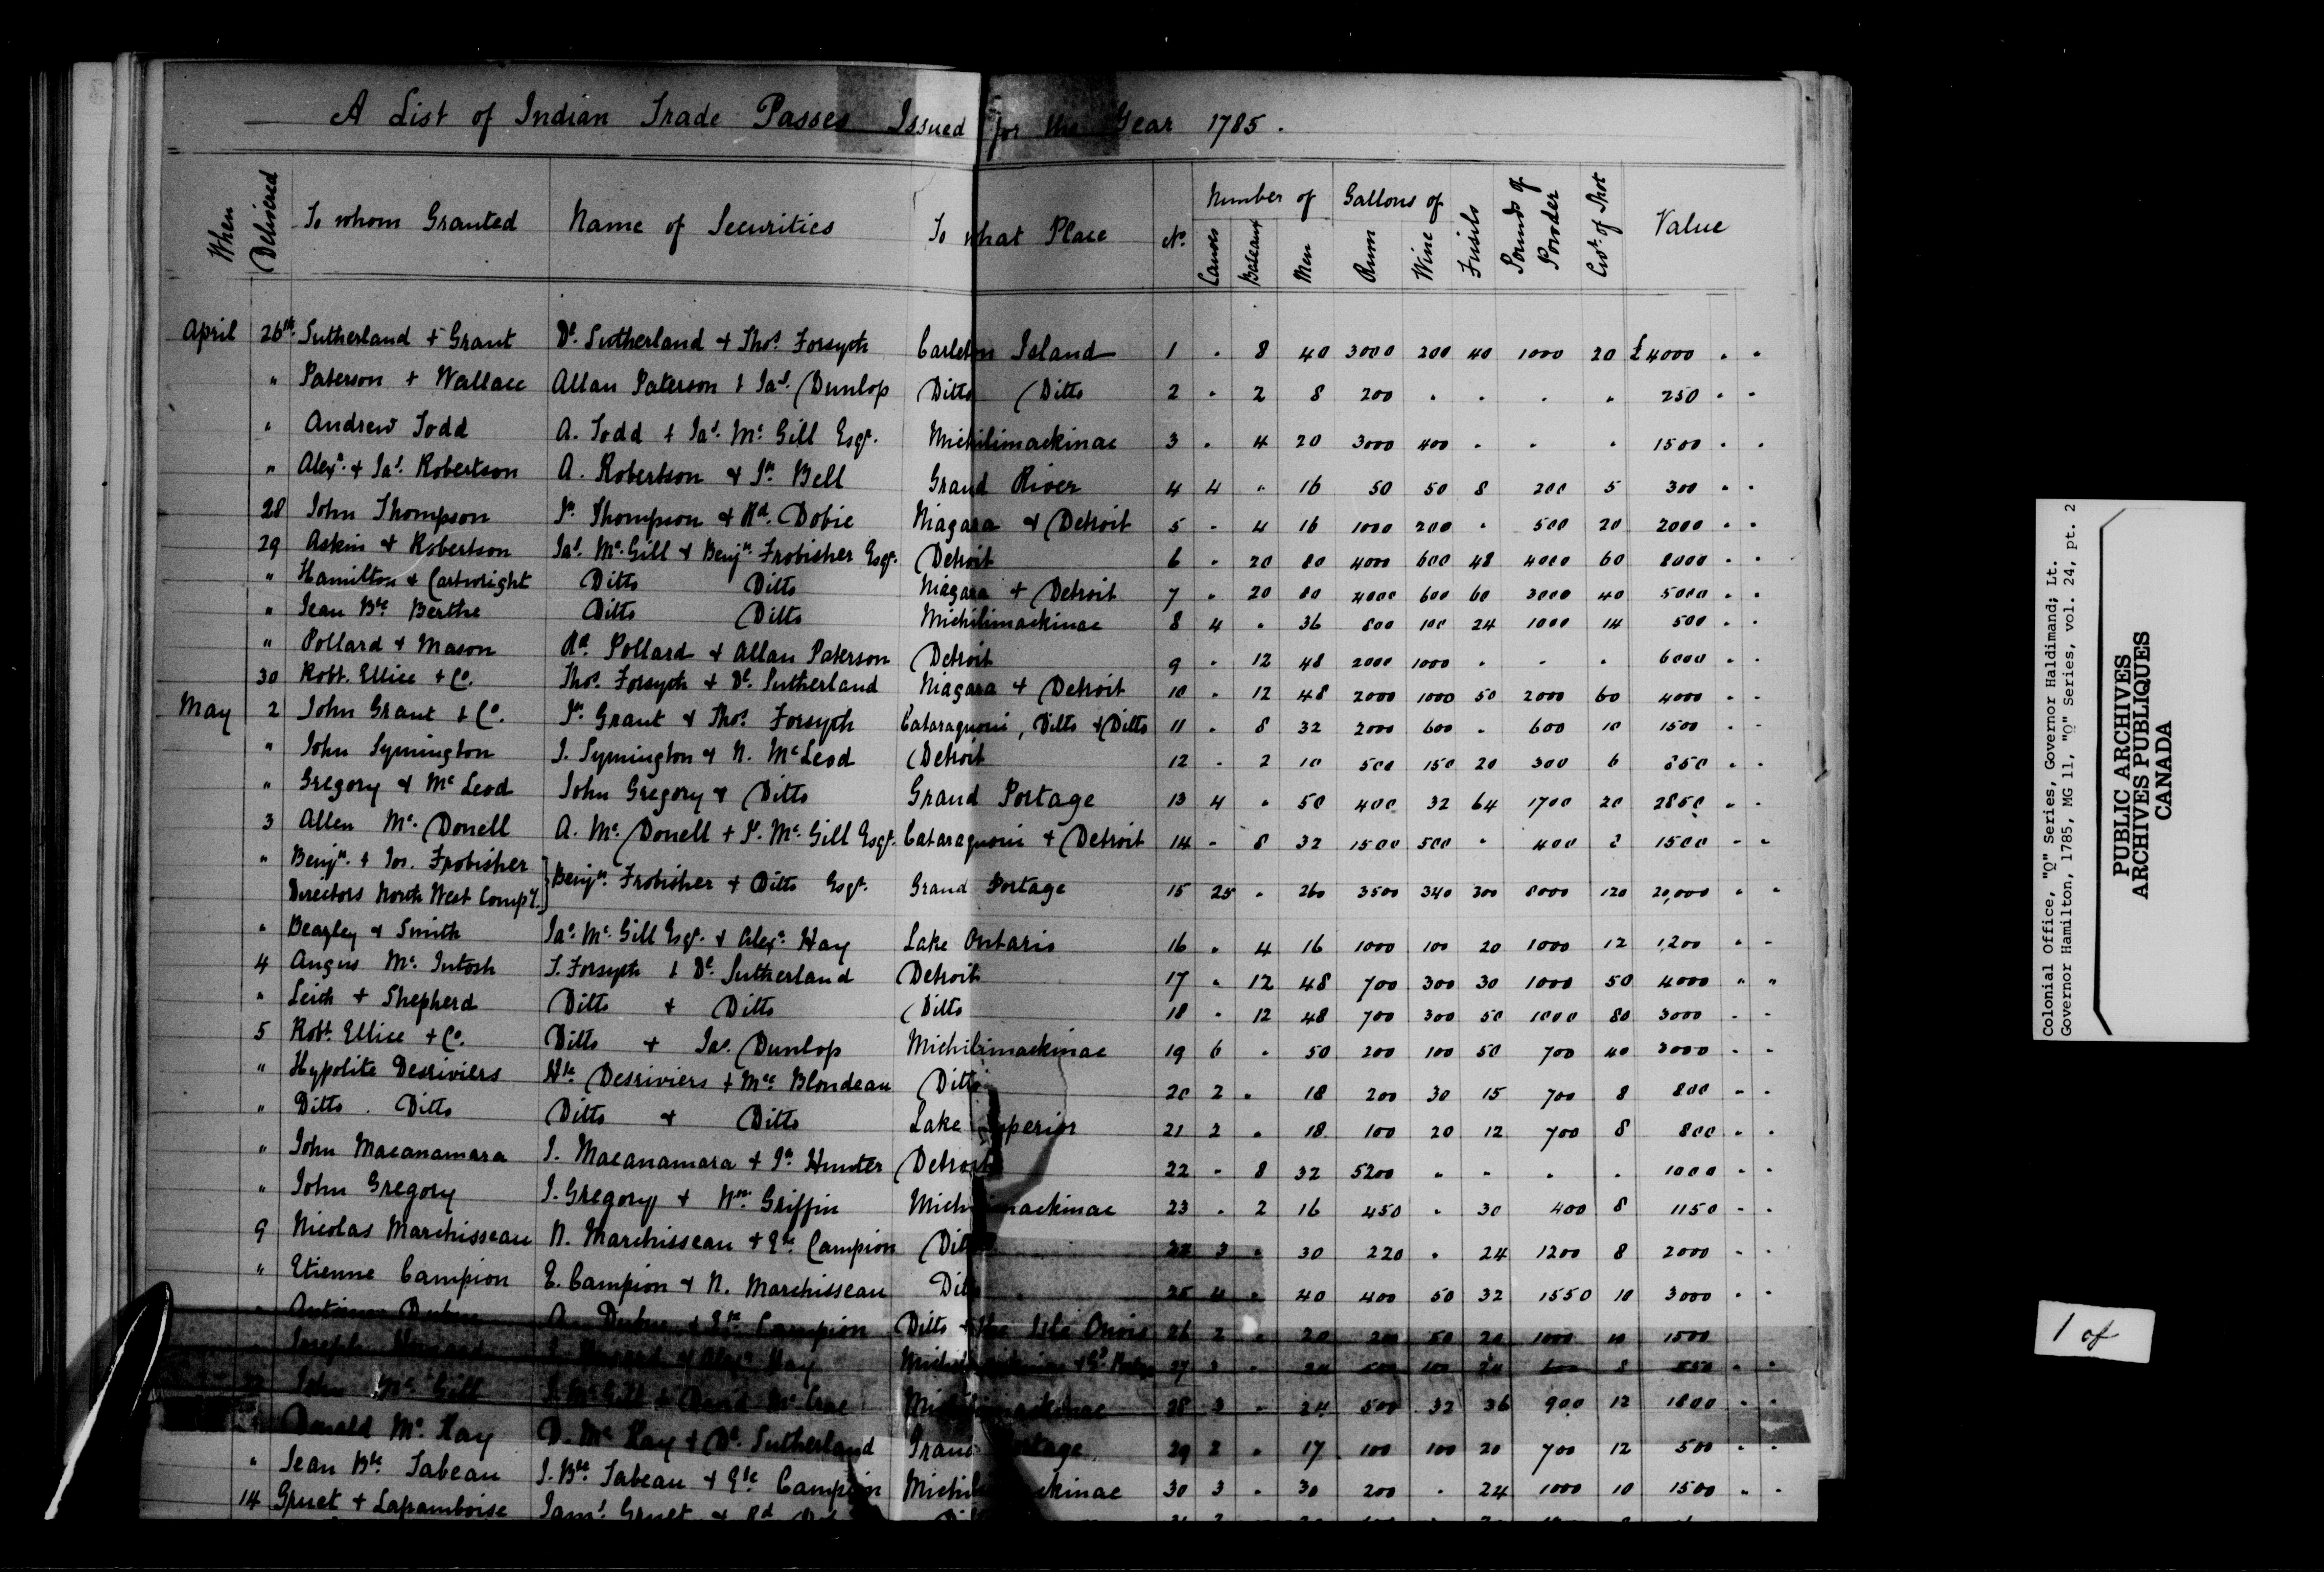 A List of Indian Trade Passes Issued for the Year 1785.
When Delivered | To whom Granted | Name of Securities | To what Place | No. | Number of Canoes | Bateaux | Men | Gallons of Rum | Wine | Fusils | Pounds of Powder | Cwt. of Shot | Value
April 26th. Sutherland + Grant | Dl. Sutherland + Thos. Forsyth | Carleton Island | 1 | . | 8 | 40 | 3000 | 200 | 40 | 1000 | 20 | £4000 . .
" Paterson + Wallace | Allan Paterson + Jas. Dunlop | Ditto Ditto | 2 | . | 2 | 8 | 200 | . | . | . | . | 250 . .
" Andrew Todd | A. Todd + Jas. Mc. Gill Esqr. | Michilimackinac | 3 | . | 4 | 20 | 3000 | 400 | . | . | . | 1500 . .
" Alexr. + Jas. Robertson | A. Robertson + Jn. Bell | Grand River | 4 | 4 | " | 16 | 50 | 50 | 8 | 200 | 5 | 300 . .
28 John Thompson | Jn. Thompson + Rd. Dobie | Niagara + Detroit | 5 | . | 4 | 16 | 1000 | 200 | . | 500 | 20 | 2000 . .
29 Askin + Robertson | Jas. Mc. Gill + Benjn. Frobisher Esqr. | Detroit | 6 | . | 20 | 80 | 4000 | 600 | 48 | 4000 | 60 | 8000 . .
" Hamilton + Cartwright | Ditto Ditto | Niagara + Detroit | 7 | . | 20 | 80 | 4000 | 600 | 60 | 3000 | 40 | 5000 . .
" Jean Bte. Berthe | Ditto Ditto | Michilimackinac | 8 | 4 | . | 36 | 800 | 100 | 24 | 1000 | 14 | 500 . .
" Pollard + Mason | Rd. Pollard + Allan Paterson | Detroit | 9 | . | 12 | 48 | 2000 | 1000 | . | . | . | 6000 . .
30 Robt. Ellice + Co. | Thos. Forsyth + Dl. Sutherland | Niagara + Detroit | 10 | . | 12 | 48 | 2000 | 1000 | 50 | 2000 | 60 | 4000 . .
May 2 John Grant + Co. | Jn. Grant + Thos. Forsyth | Cataraquoui, Ditto + Ditto | 11 | . | 8 | 32 | 2000 | 600 | . | 600 | 10 | 1500 . .
" John Symington | J. Symington + N. McLeod | Detroit | 12 | . | 2 | 10 | 500 | 150 | 20 | 300 | 6 | 850 . .
" Gregory + Mc Leod | John Gregory + Ditto | Grand Portage | 13 | 4 | . | 50 | 400 | 32 | 64 | 1700 | 20 | 2850 . .
3 Allen Mc. Donell | A. Mc. Donell + J. Mc. Gill Esqr. | Cataraquoui + Detroit | 14 | . | 8 | 32 | 1500 | 500 | . | 400 | 1500 . .
" Benjn. + Jos. Frobisher
Directors North West Compy. } Benjn. Frobisher + Ditto Esqr. | Grand Portage | 15 | 25 | . | 260 | 3500 | 340 | 300 | 8000 | 120 | 20,000 . .
" Beazley + Smith | Jas. Mc. Gill Esqr. + Alexr. Hay | Lake Ontario | 16 | . | 4 | 16 | 1000 | 100 | 20 | 1000 | 12 | 1,200 . .
4 Angus Mc. Intosh | T. Forsyth + Dl. Sutherland | Detroit | 17 | . | 12 | 48 | 700 | 300 | 30 | 1000 | 50 | 4000 . .
" Leith + Shepherd | Ditto + Ditto | Ditto | 18 | . | 12 | 48 | 700 | 300 | 50 | 1000 | 80 | 3000 . .
5 Robt. Ellice + Co. | Ditto + Jas. Dunlop | Michilimackinac | 19 | 6 | . | 50 | 200 | 100 | 50 | 700 | 40 | 3000 . .
" Hypolite Desriviers | Hte. Desriviers + Mce. Blondeau | Ditto | 20 | 2 | . | 18 | 200 | 30 | 15 | 700 | 8 | 800 . .
" Ditto . Ditto | Ditto + Ditto | Lake Superior | 21 | 2 | . | 18 | 100 | 20 | 12 | 700 | 8 | 800 . .
" John Macanamara | J. Macanamara + Jn. Hunter | Detroit | 22 | . | 8 | 32 | 5200 | . | . | . | . | 1000 . .
" John Gregory | J. Gregory + Wm. Griffin | Michilimackinac | 23 | . | 2 | 16 | 450 | . | 30 | 400 | 8 | 1150 . .
9 Nicolas Marchisseau | N. Marchisseau + Ete. Campion | Ditto | 3 | . | 30 | 220 | . | 24 | 1200 | 8 | 2000 . .
" Etienne Campion | E. Campion + N. Marchisseau | Ditto | 25 | 4 | . | 40 | 400 | 50 | 32 | 1550 | 10 | 3000 . .
" Antoine | A. + Ete. Campion | Ditto + the | 26 | 2 | . | 20 | 200 | 50 | 20 | 1000 | 10 | 1500
Joseph Howard | J. Howard + Alexr. Hay | Michilimackinac + | 27 | . | 24 | 100 | 24 | 8 | . .
John Mc Gill | J. Mc Gill + David Mc Crae | Michilimackinac | 28 | 3 | . | 24 | 500 | 32 | 36 | 900 | 12 | 1800 . .
Donald Mc. Kay | D. Mc Kay + Dl. Sutherland | Grand Portage | 29 | 2 | . | 17 | 100 | 100 | 20 | 700 | 12 | 500 . .
" Jean Bte. Tabeau | J. Bte. Tabeau + Ete. Campion | Michilimackinac | 30 | 3 | . | 30 | 200 | . | 24 | 1000 | 10 | 1500 . .
14 Gruet + Laframboise
Colonial Office, "Q" Series, Governor Haldimand; Lt.
Governor Hamilton, 1785, MG 11, "Q" Series, vol. 24, pt. 2
PUBLIC ARCHIVES
ARCHIVES PUBLIQUES
CANADA
1 of